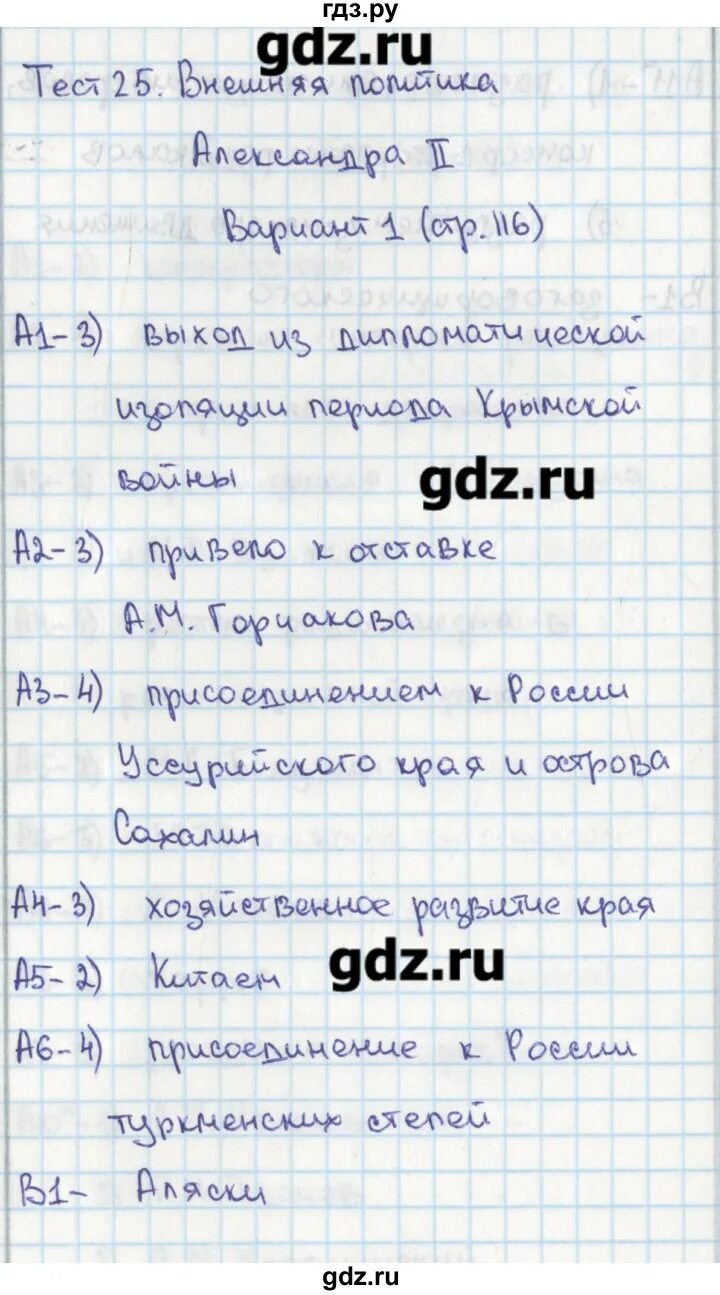 гдз.ру
gdz.ru
Тест 25. Внешняя политика
Александра II
Вариант 1 (стр. 116)
А1-3) выход из дипломатической
изоляции периода Крымской
войны
gdz.ru
А2-3) привело к отставке
А.М. Горчакова
А3-4) присоединением к России
Уссурийского края и острова
Сахалин
А4-3) хозяйственное развитие края
А5-2) Китаем
gdz.ru
А6-4) присоединение к России
туркменских степей
В1- Аляски
gdz.ru